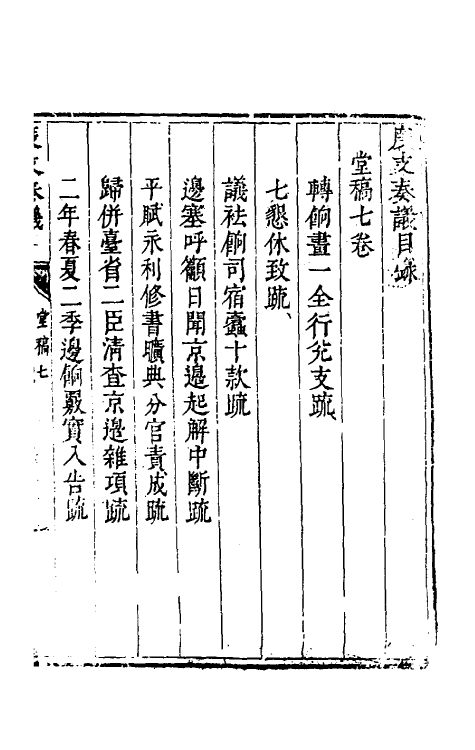 度支奏議目錄
堂稿七卷
轉餉畫一全行兌支疏
七懇休致疏
議袪餉司宿蠹十款疏
邊塞呼籲日聞京邊起解中斷疏
平賦永利修書曠典分官責成疏
歸併臺省二臣清查京邊雜項疏
二年春夏二季邊餉覈實入告疏
度支奏議
堂稿七